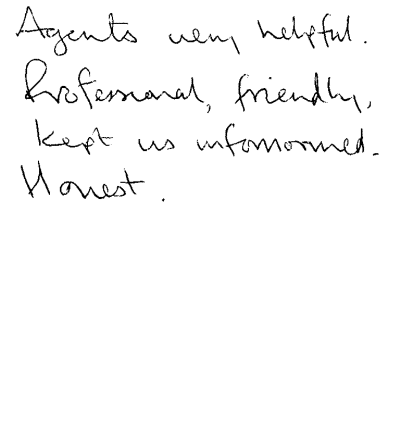 Agents very helpful.
Professional, friendly,
kept us informormed.
Honest.